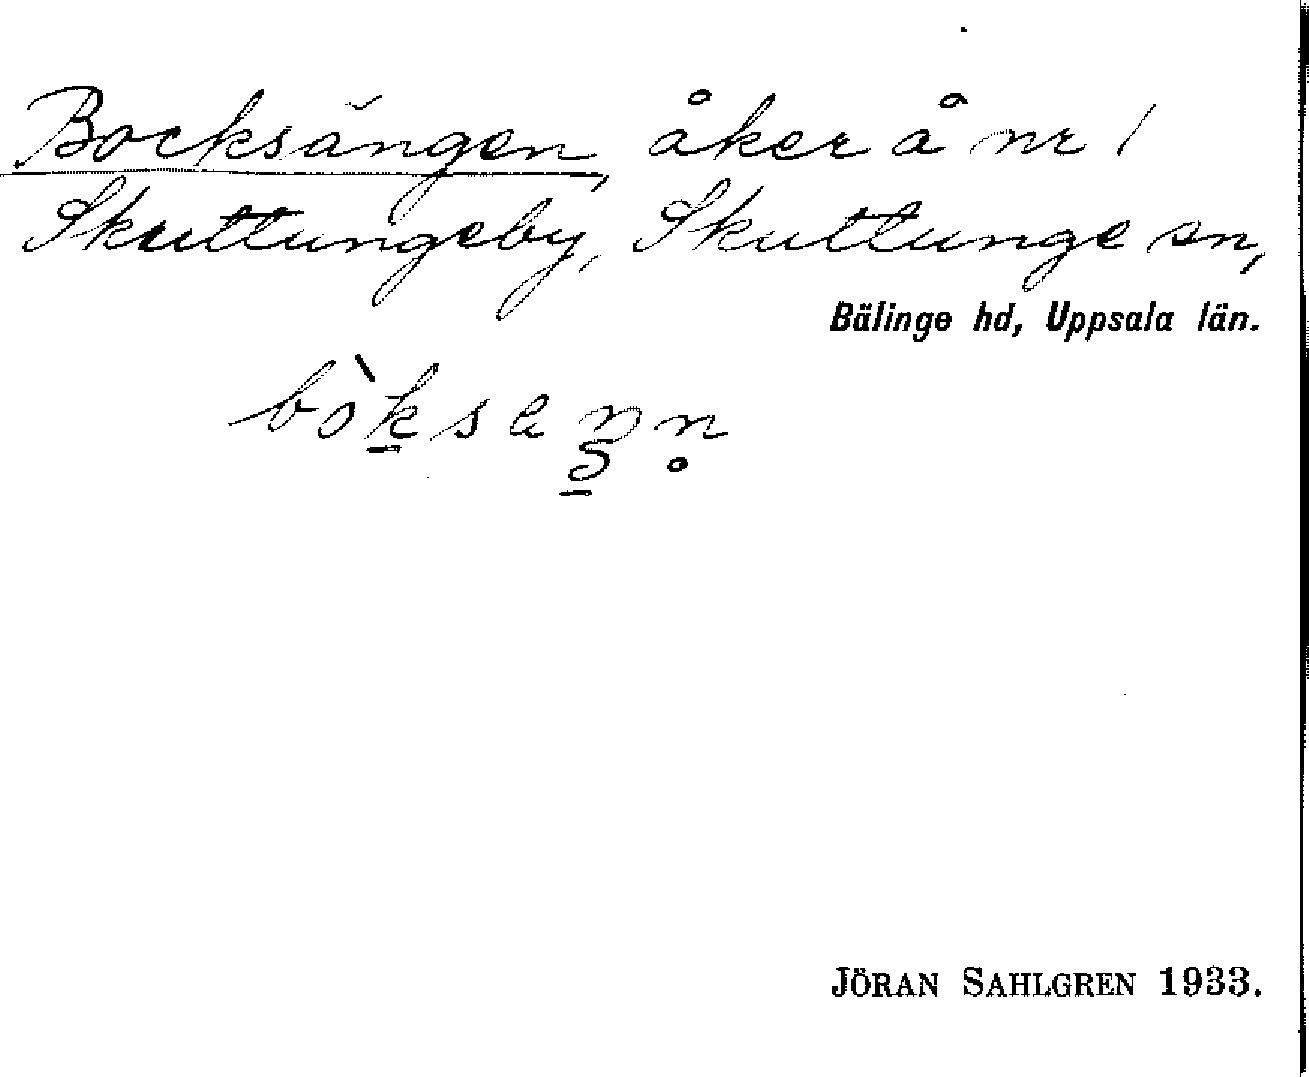 Bocksängen, åker å nr 1
Skuttungeby, Skuttunge sn,
Bälinge hd, Uppsala län.
JÖRAN SAHLGREN 1933.